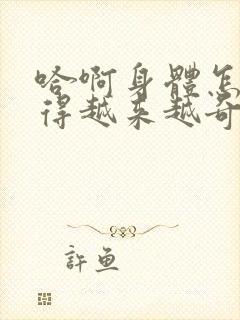 哈啊身體怎
得越来越奇
許魚